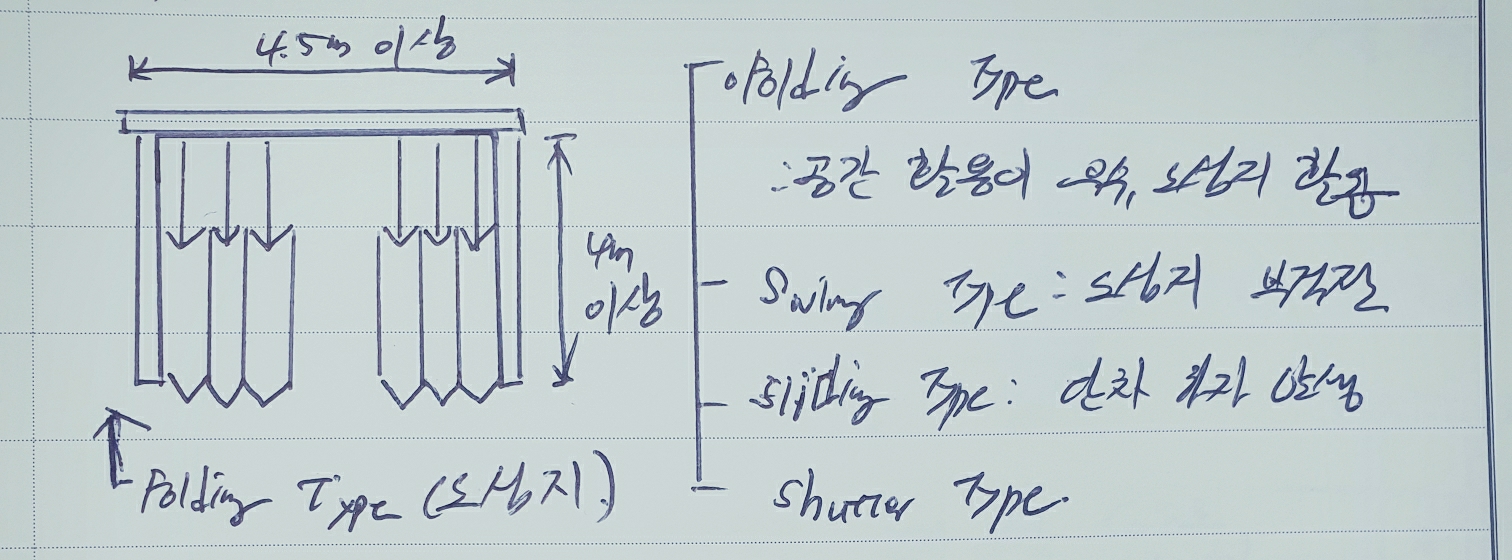 4.5m 이상
4m
이상
Folding Type (도심지)
Folding Type
: 공간 활용이 우수, 도심지 활용
Swing Type : 도심지 부적절
Sliding Type : 단차 하자 발생
Shutter Type